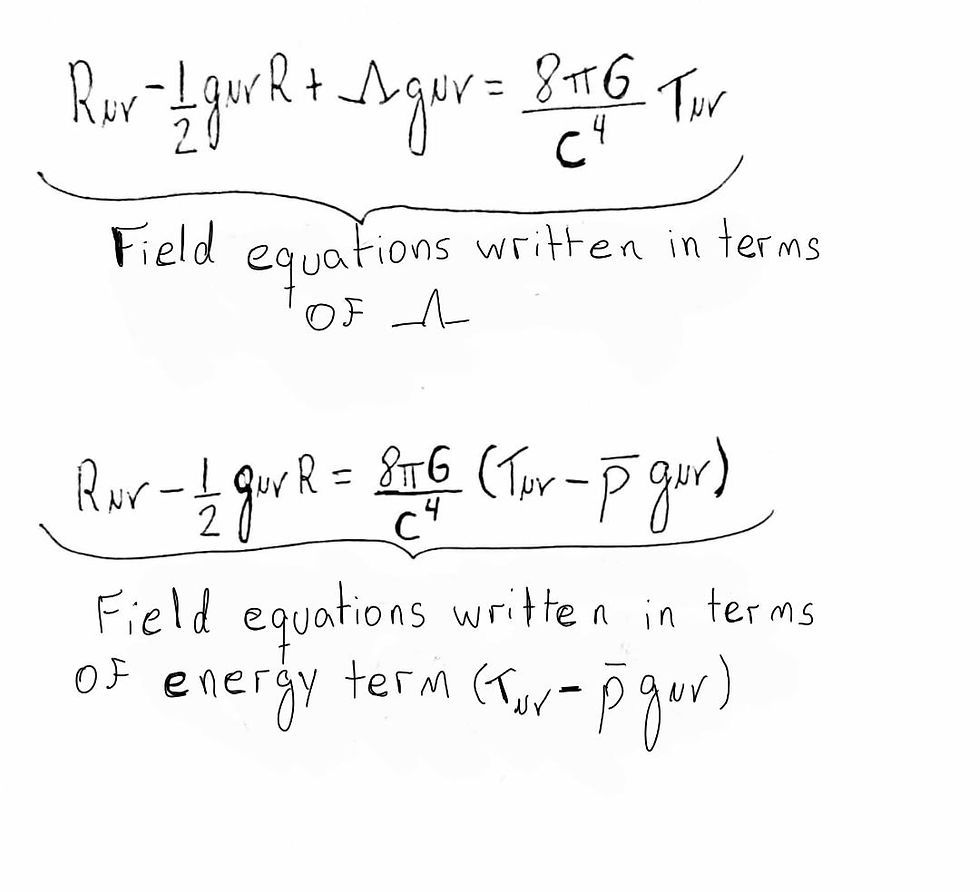 Rμν - 1/2 gμν R + Λ gμν = 8πG/C⁴ Tμν
Field equations written in terms
OF Λ
Rμν - 1/2 gμν R = 8πG/C⁴ (Tμν - p̅ gμν)
Field equations written in terms
OF energy term (Tμν - p̅ gμν)